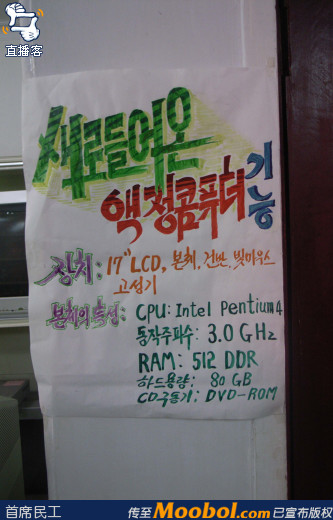 直播客
새로들어온
액정콤퓨터
기능
장치: 17"LCD, 본체, 건반, 빛마우스
고성기
본체의 특성: CPU: Intel Pentium4
동작주파수: 3.0 GHz
RAM: 512 DDR
하드용량: 80 GB
CD구동기: DVD-ROM
首席民工
传至Moobol.com已宣布版权